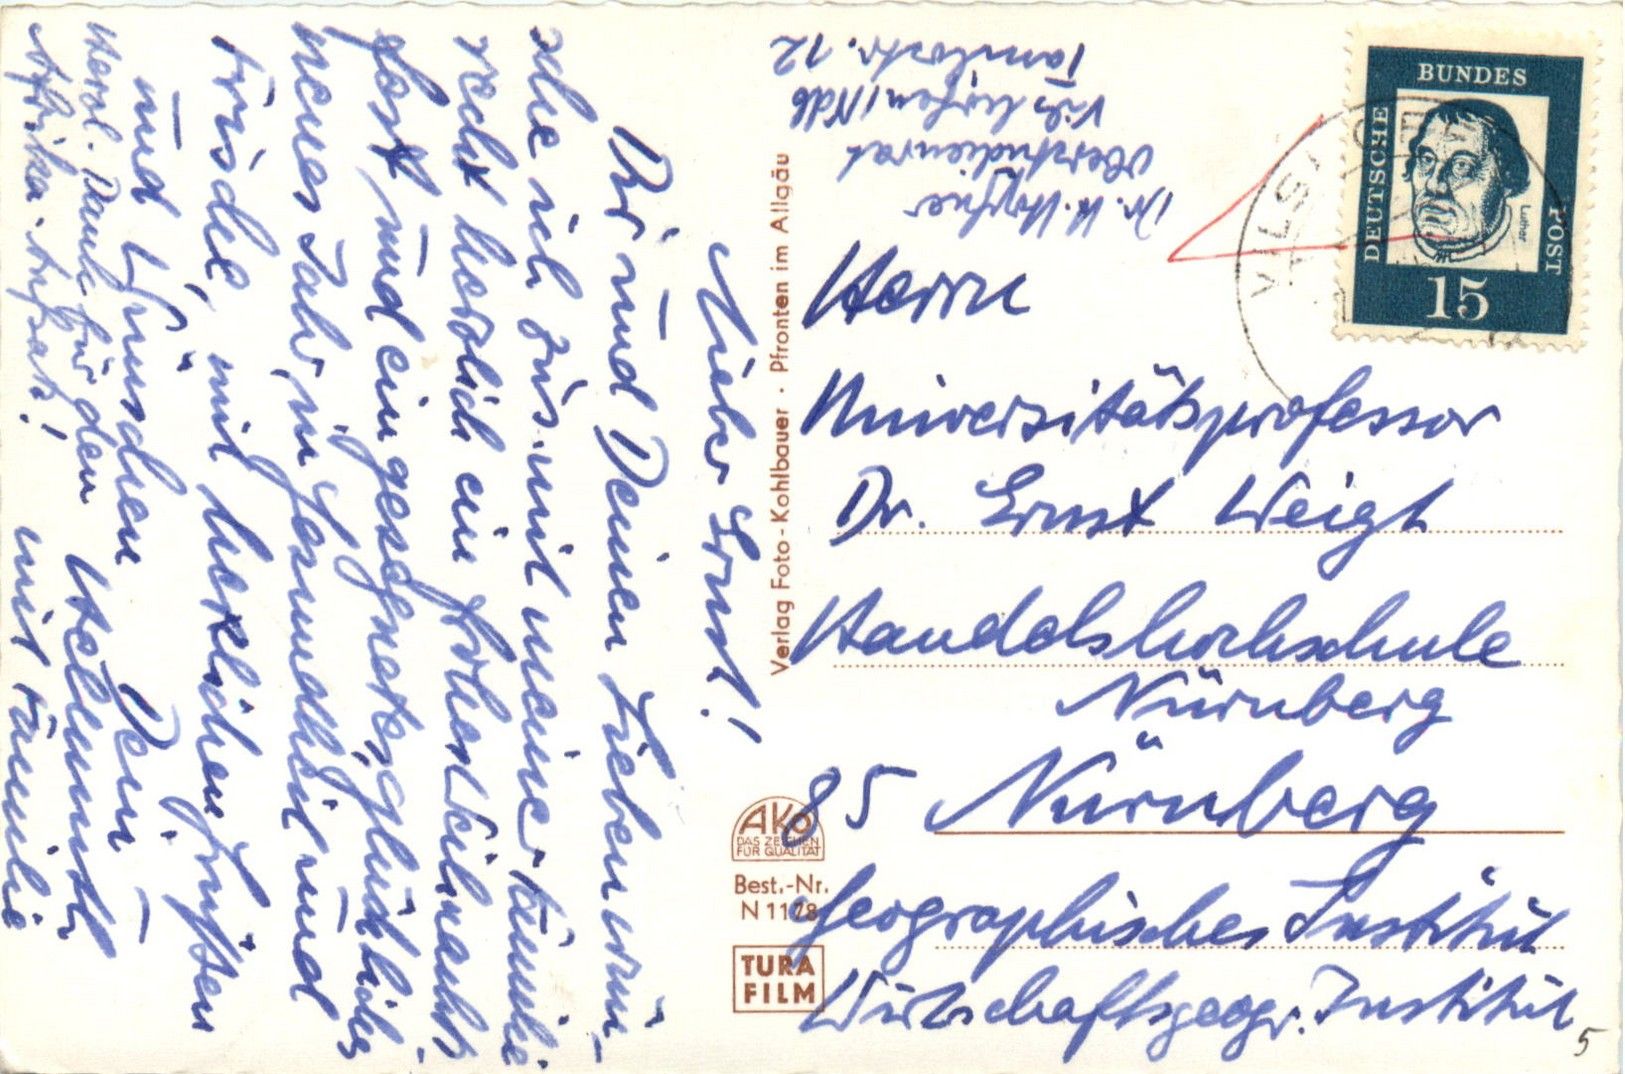 Lieber Ernst!
Dir und Deinen Lieben wün-
sche ich zus. mit meiner Familie
recht herzlich ein frohes Weihnachts-
fest und ein gesegnetes, glückliches
neues Jahr, in Gesundheit und
Friede, mit herzlichen Grüßen
und Wünschen Dein
Hellmuth
mit Familie
Herzl. Dank für den
Afrika-Aufsatz!
Verlag Foto-Kohlbauer · Pfronten im Allgäu
AKO
DAS ZEICHEN
FÜR QUALITÄT
Best.-Nr.
N 1178
TURA
FILM
Dr. H.
Oberstudienrat
Vilshofen/Ndb
12
DEUTSCHE
BUNDES
POST
Luther
15
VILSHOFEN
Herrn
Universitätsprofessor
Dr. Ernst Weigt
Handelshochschule
Nürnberg
85 Nürnberg
Geographisches Institut
Wirtschaftsgeogr. Institut
5